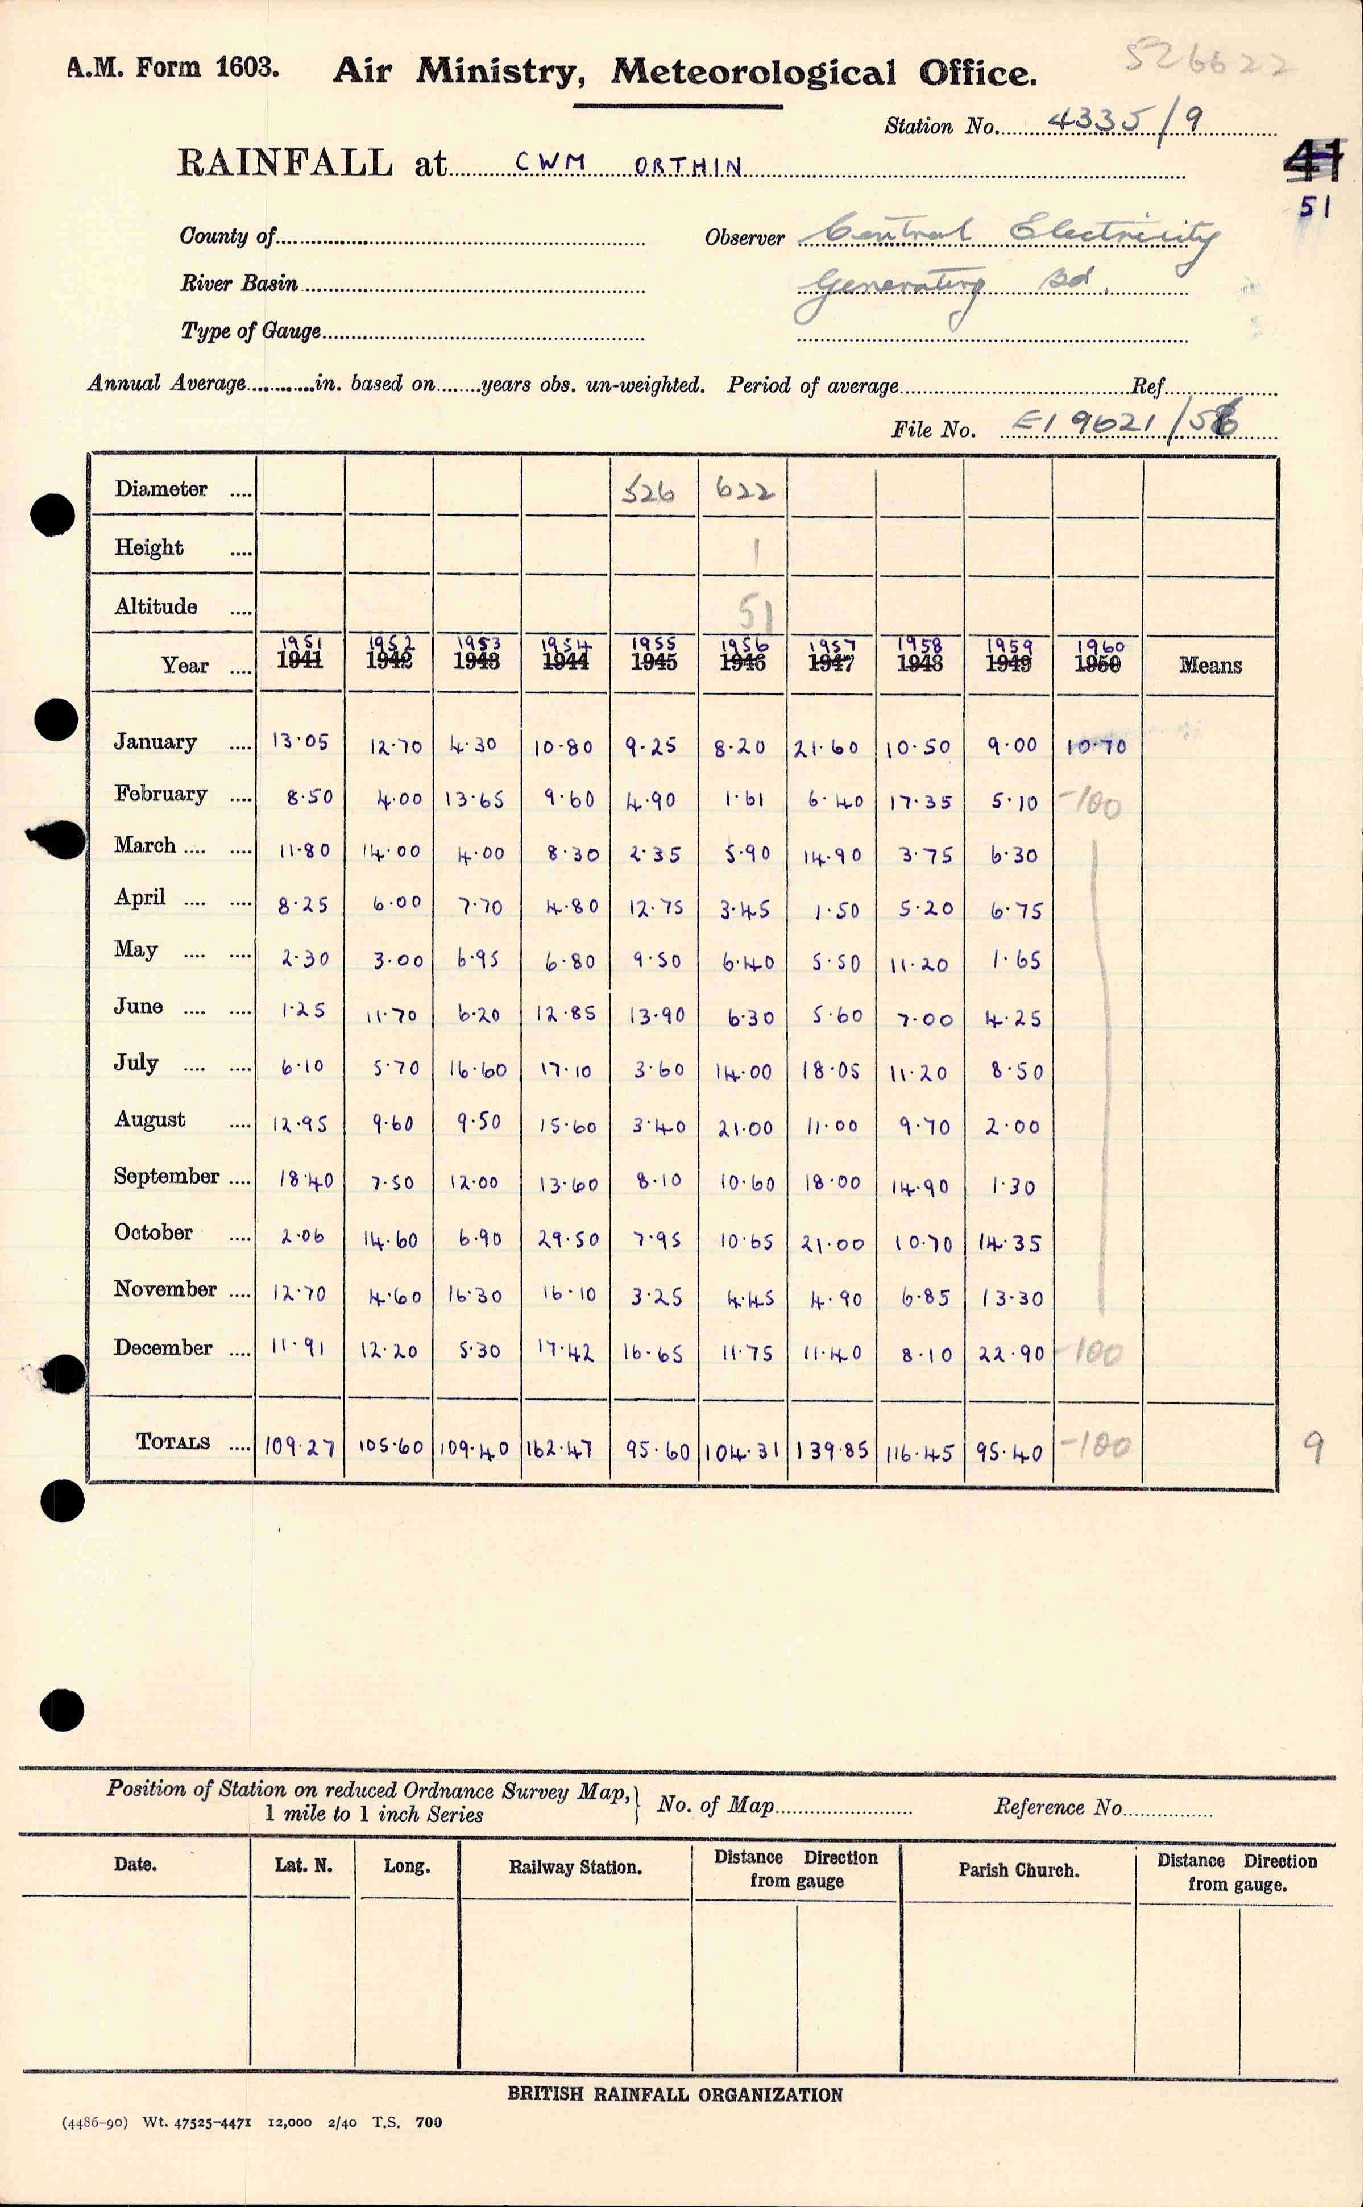 526622
A.M. Form 1603. Air Ministry, Meteorological Office.
Station No. 4335/9
RAINFALL at CWM ORTHIN
41
51
County of Observer Central Electricity
River Basin Generating Bd.
Type of Gauge
Annual Average in. based on years obs. un-weighted. Period of average Ref
File No. E1 9621/
Diameter 526 622
Height 1
Altitude 51
1951 1952 1953 1954 1955 1956 1957 1958 1959 1960
Year 1941 1942 1943 1944 1945 1946 1947 1948 1949 1950 Means
January 13·05 12·70 4·30 10·80 9·25 8·20 21·60 10·50 9·00 10·70
February 8·50 4·00 13·65 9·60 4·90 1·61 6·40 17·35 5·10 -100
March 11·80 14·00 4·00 8·30 2·35 5·90 14·90 3·75 6·30
April 8·25 6·00 7·70 4·80 12·75 3·45 1·50 5·20 6·75
May 2·30 3·00 6·95 6·80 9·50 6·40 5·50 11·20 1·65
June 1·25 11·70 6·20 12·85 13·90 6·30 5·60 7·00 4·25
July 6·10 5·70 16·60 17·10 3·60 14·00 18·05 11·20 8·50
August 12·95 9·60 9·50 15·60 3·40 21·00 11·00 9·70 2·00
September 18·40 7·50 12·00 13·60 8·10 10·60 18·00 14·90 1·30
October 2·06 14·60 6·90 29·50 7·95 10·65 21·00 10·70 14·35
November 12·70 4·60 16·30 16·10 3·25 4·45 4·90 6·85 13·30
December 11·91 12·20 5·30 17·42 16·65 11·75 11·40 8·10 22·90 -100
TOTALS 109·27 105·60 109·40 162·47 95·60 104·31 139·85 116·45 95·40 -100
9
Position of Station on reduced Ordnance Survey Map, 1 mile to 1 inch Series } No. of Map Reference No.
Date. Lat. N. Long. Railway Station. Distance Direction from gauge Parish Church. Distance Direction from gauge.
BRITISH RAINFALL ORGANIZATION
(4486-90) Wt. 47525-4471 12,000 2/40 T.S. 700